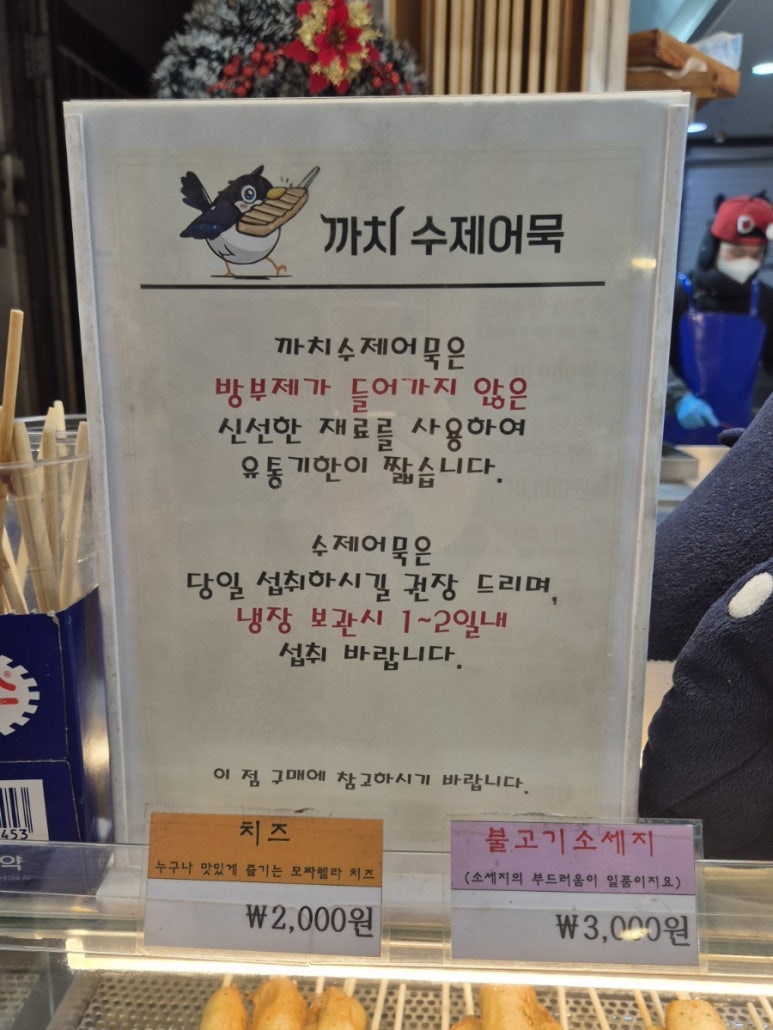 까치 수제어묵
까치수제어묵은
방부제가 들어가지 않은
신선한 재료를 사용하여
유통기한이 짧습니다.
수제어묵은
당일 섭취하시길 권장 드리며,
냉장 보관시 1~2일내
섭취 바랍니다.
이 점 구매에 참고하시기 바랍니다.
치즈
누구나 맛있게 즐기는 모짜렐라 치즈
₩2,000원
불고기소세지
(소세지의 부드러움이 일품이지요)
₩3,000원
453
약